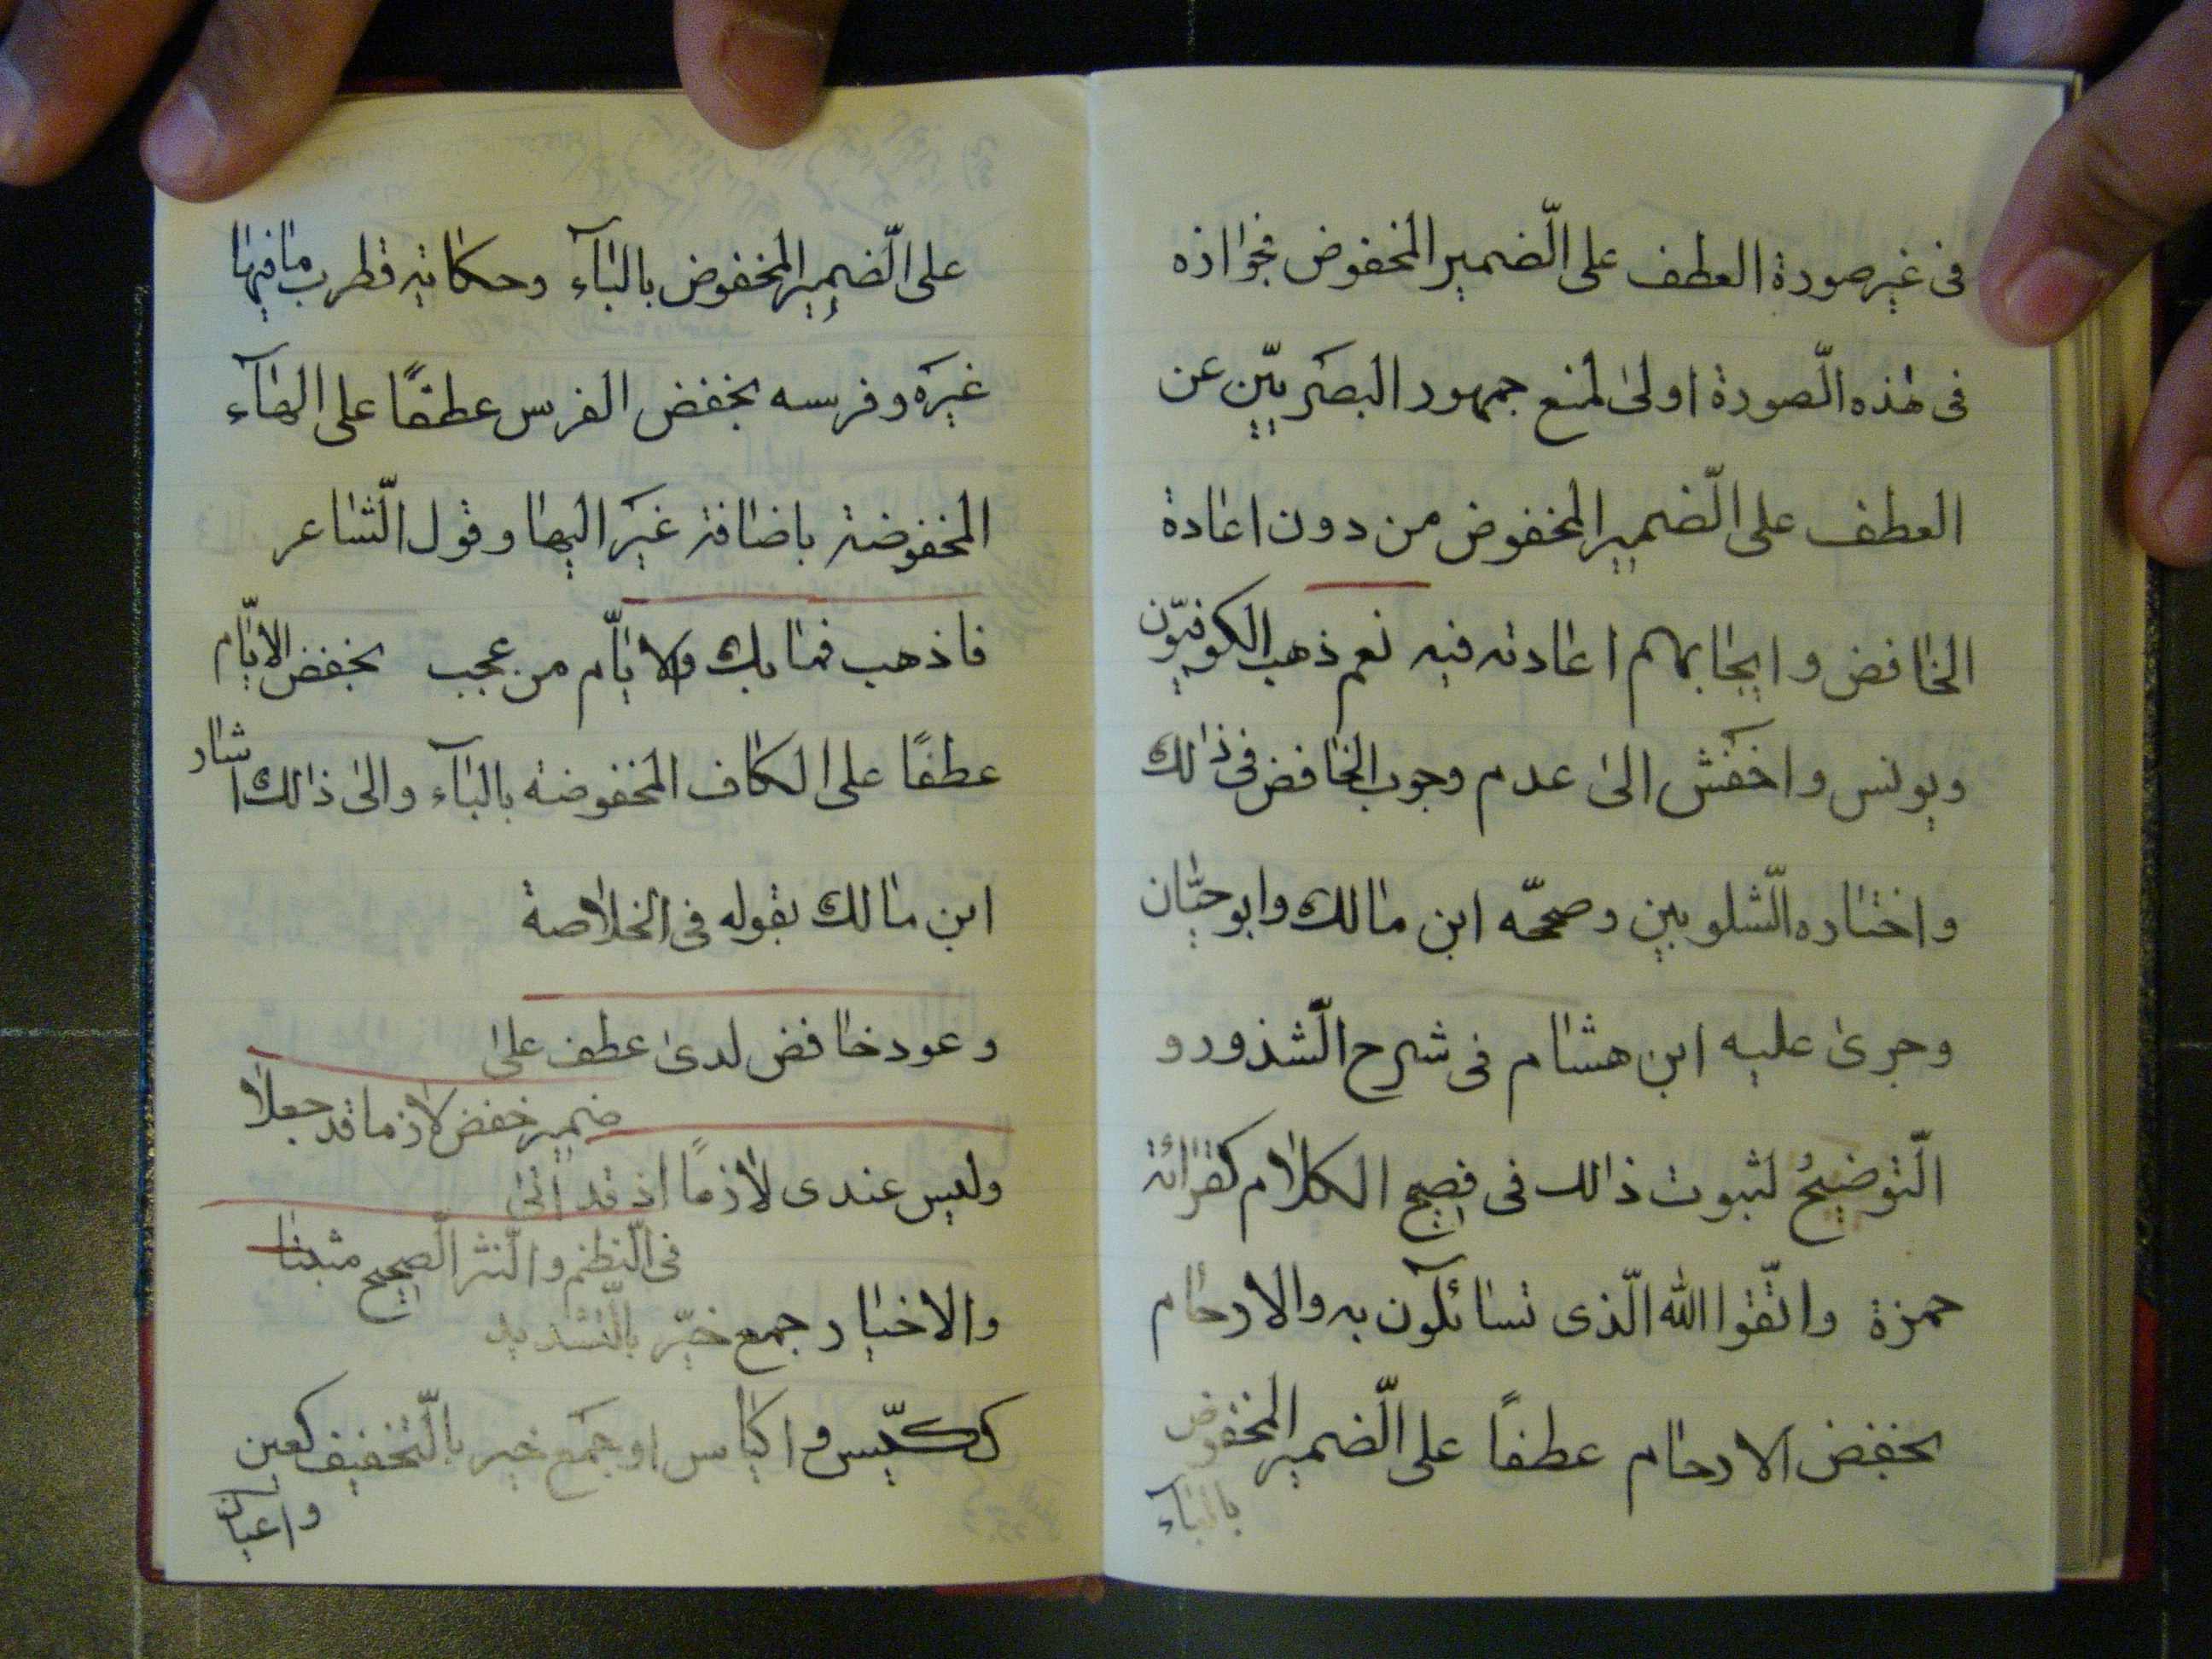 فى غير صورة العطف على الّضمير المخفوض فجوازه
فى هٰذه الّصورة اولىٰ لمنع جمهور البصَريّين عن
العطف على الّضمير المخفوض من دون اعٰادة
الخٰافض و ايجٰابهم اعٰادته فيه نعم ذهب الكوفيّون
ويونس واخفش الىٰ عدم وجوب الخٰافض فى ذٰلك
واختٰاره الّشلوبين وصحّحه ابن مٰالك وابوحيّٰان
وجرىٰ عليه ابن هشٰام فى شرح الّشذور و
الّتوضيحُ لثبوت ذٰلك فى فصيح الكلٰام كقرٰائة
حمزة واتّقوا الله الّذى تسٰائلون به والارحٰام
بخفض الارحٰام عطفًا على الّضمير المخفوض
بالبٰآء
على الّضمير المخفوض بالبٰآء وحكٰاية قطرب مٰا فيهٰا
غيرَه وفرسه بخفض الفرس عطفًا على الهٰآء
المخفوضة باضٰافة غيَر اليهٰا وقول الّشٰاعر
فاذهب فمٰا بك والايّٰام من عجب بخفض الايّٰام
عطفًا على الكٰاف المخفوضة بالبٰآء والىٰ ذٰلك اشٰار
ابن مٰالك بقوله فى الخلٰاصة
وعود خٰافض لدىٰ عطف علىٰ
ضمير خفض لازما قد جعلٰا
وليس عندى لٰازمًا اذ قد اتىٰ
فى الّنظم والّنثر الّصحيح مثبتٰا
والاخيٰار جمع خيّر بالّتشديد
ككيّس واكيٰاس او جمَع خير بالّتخفيف كعين
واعيٰان